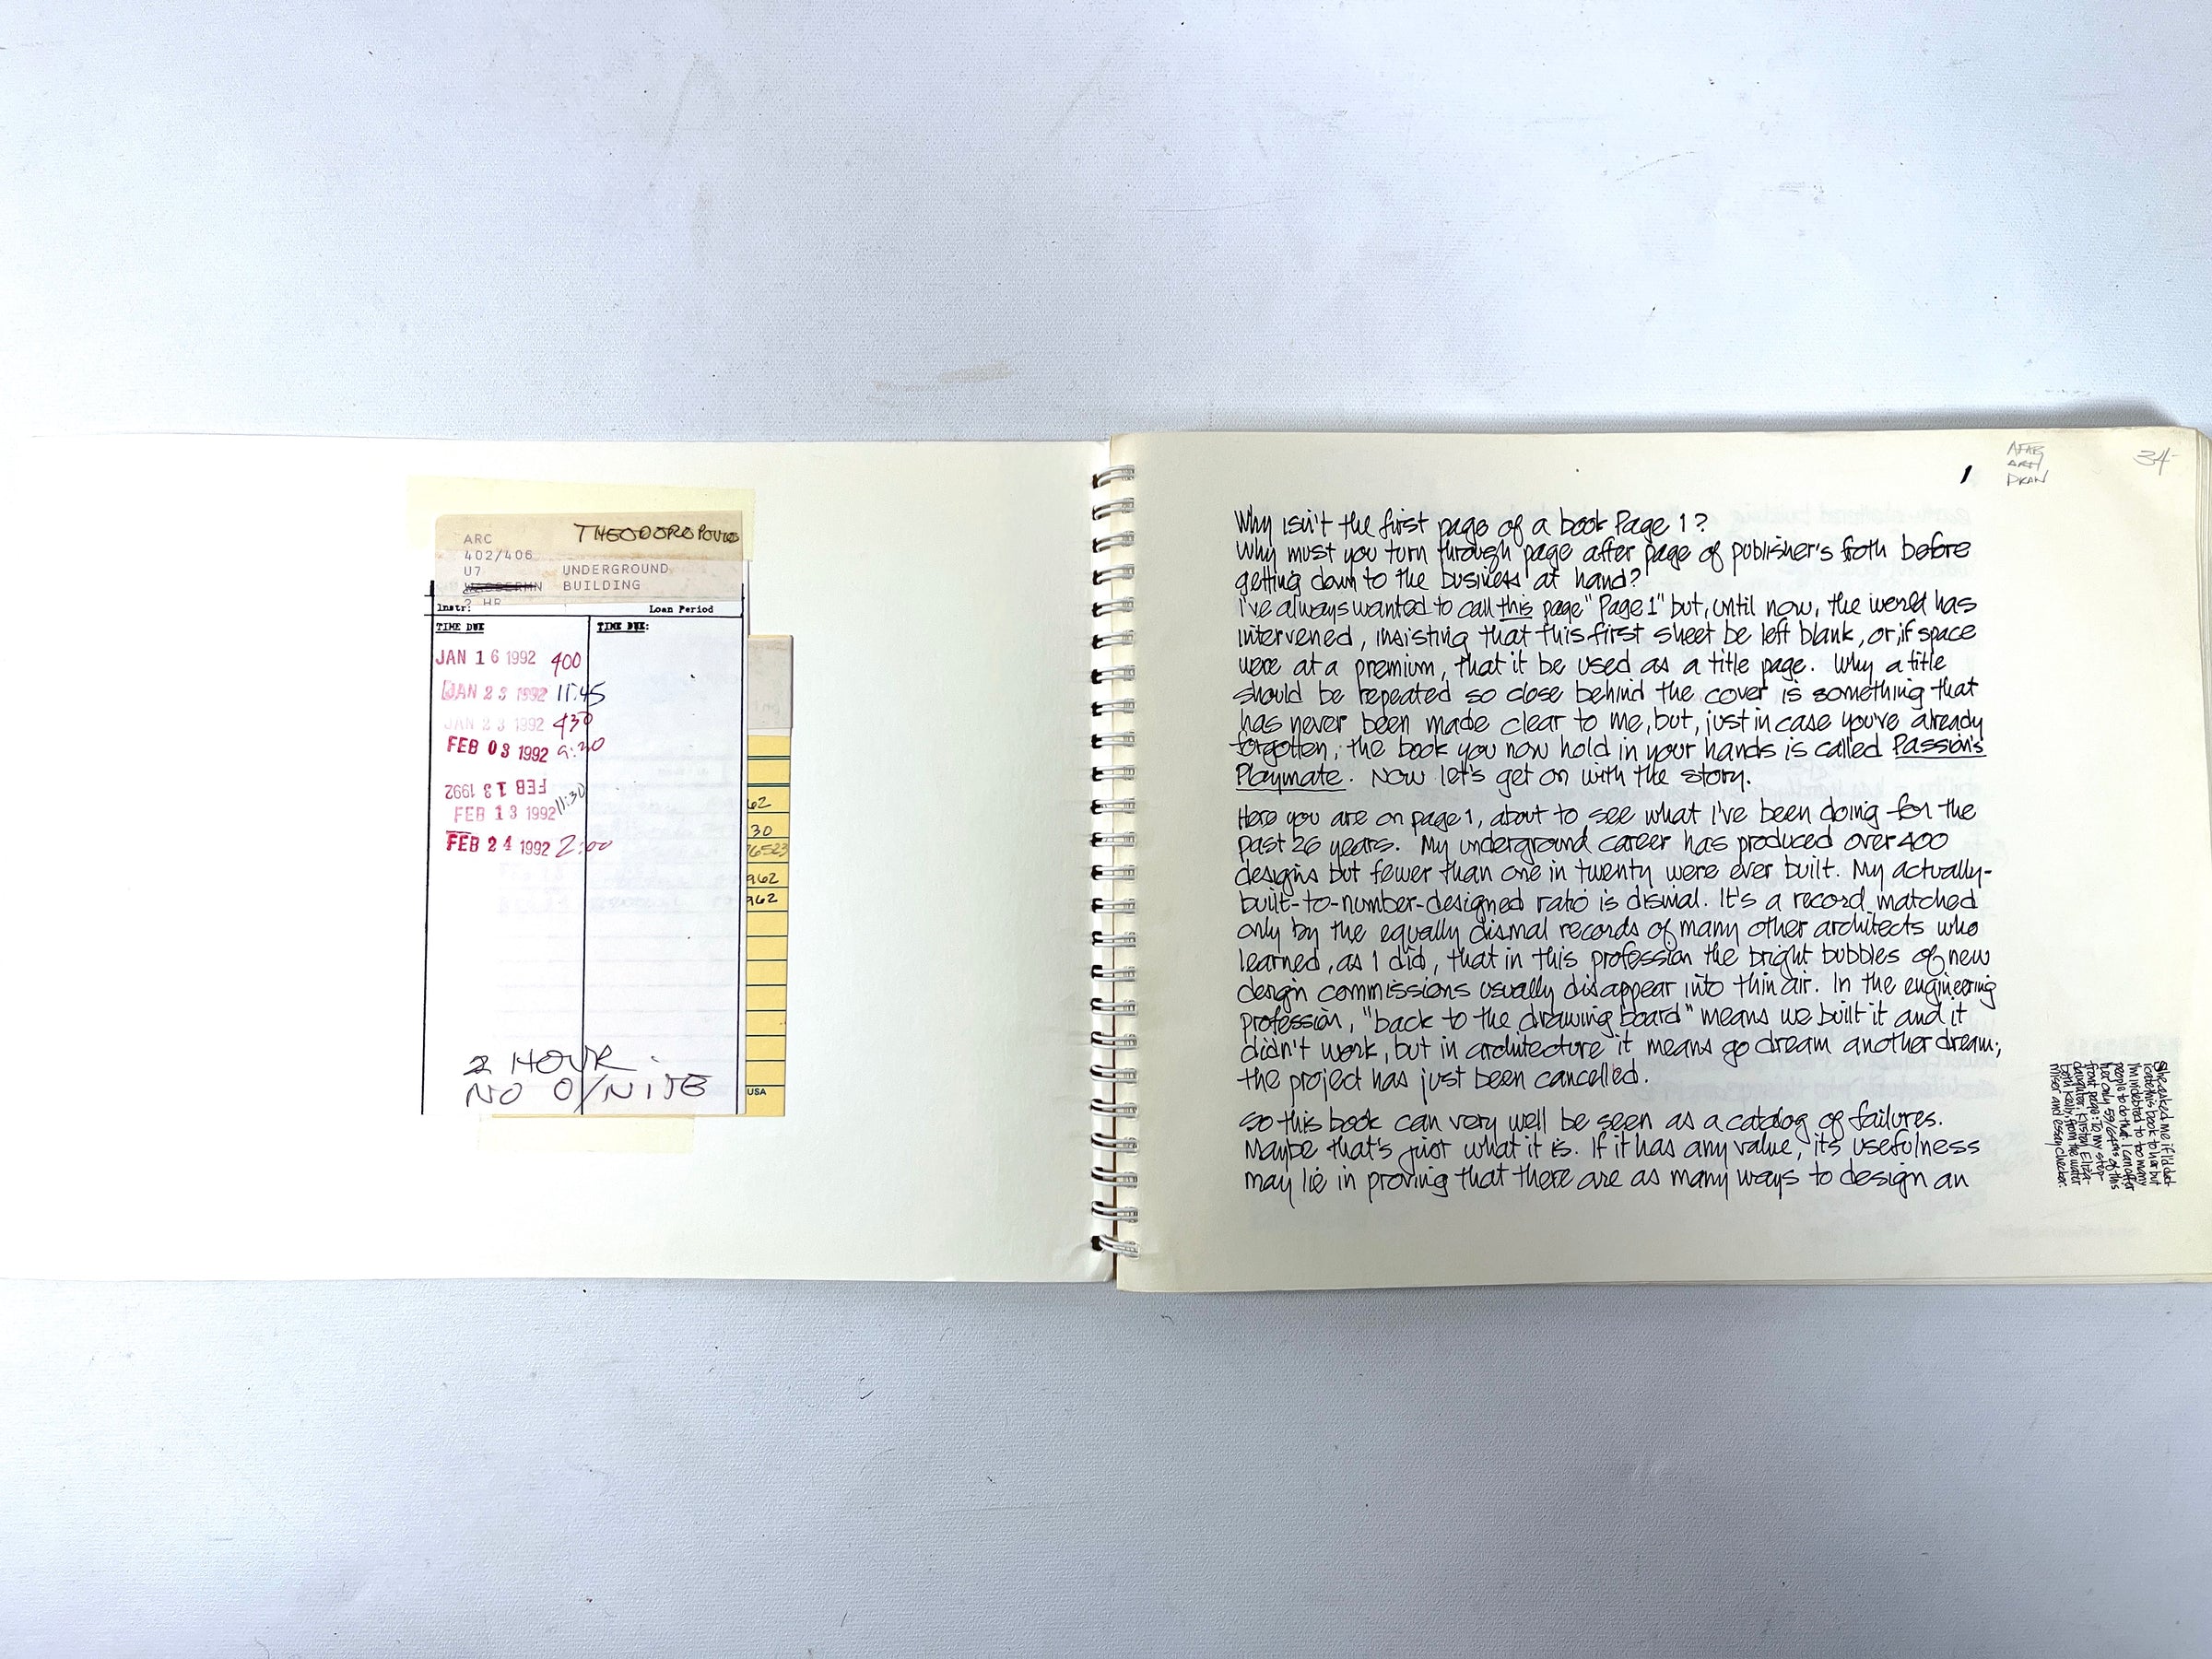 THEODOROPOULOS
ARC
402/406
U7 UNDERGROUND
BUILDING
2 HR
Instr: Loan Period
TIME DUE TIME DUE:
JAN 16 1992 400
JAN 23 1992 11:45
JAN 23 1992 430
FEB 03 1992 9:30
FEB 13 1992
FEB 13 1992 11:30
FEB 24 1992 2:00
2 HOUR
NO O/NITE
62
30
76523
962
962
USA
1
34-
Why isn't the first page of a book Page 1?
Why must you turn through page after page of publisher's froth before
getting down to the business at hand?
I've always wanted to call this page "Page 1" but, until now, the world has
intervened, insisting that this first sheet be left blank, or, if space
were at a premium, that it be used as a title page. Why a title
should be repeated so close behind the cover is something that
has never been made clear to me, but, just in case you've already
forgotten, the book you now hold in your hands is called Passion's
Playmate. Now let's get on with the story.
Here you are on page 1, about to see what I've been doing for the
past 26 years. My underground career has produced over 400
designs but fewer than one in twenty were ever built. My actually-
built-to-number-designed ratio is dismal. It's a record matched
only by the equally dismal records of many other architects who
learned, as I did, that in this profession the bright bubbles of new
design commissions usually disappear into thin air. In the engineering
profession, "back to the drawing board" means we built it and it
didn't work, but in architecture it means go dream another dream;
the project has just been cancelled.
So this book can very well be seen as a catalog of failures.
Maybe that's just what it is. If it has any value, its usefulness
may lie in proving that there are as many ways to design an
She asked me if I'd ded-
icate this book to her but
I'm indebted to too many
people to do that. I can offer
her only 59/64ths of this
front page: To my step-
daughter, Kirsten Eliza-
beth Kelly, from the water
miser and essay checker.